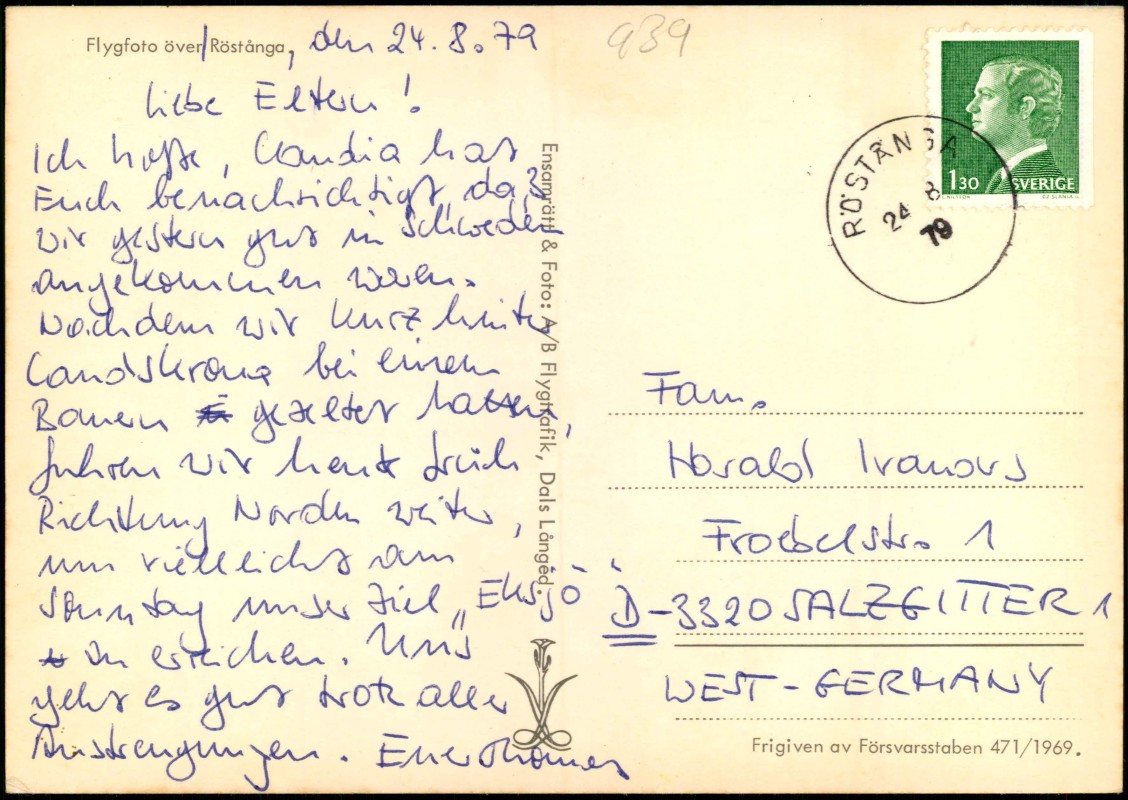 Flygfoto över Röstånga, den 24.8.79
939
Liebe Eltern!
Ich hoffe, Claudia hat
Euch benachrichtigt, daß
wir gestern gut in Schweden
angekommen waren.
Nachdem wir kurz hinter
Landskrona bei einem
Bauern gezeltet hatten,
fuhren wir heute früh
Richtung Norden weiter,
um vielleicht am
Sonntag unser Ziel „Eksjö“
zu erreichen. Uns
geht es gut trotz aller
Anstrengungen. Euer Thomas
Ensamrätt & Foto: A/B Flygtrafik, Dals Långed.
RÖSTÅNGA
24 8
79
1 30 SVERIGE
CZ SLANIA
Fam.
Harald Ivanovs
Froebelstr. 1
D-3320 SALZGITTER 1
WEST-GERMANY
Frigiven av Försvarsstaben 471/1969.